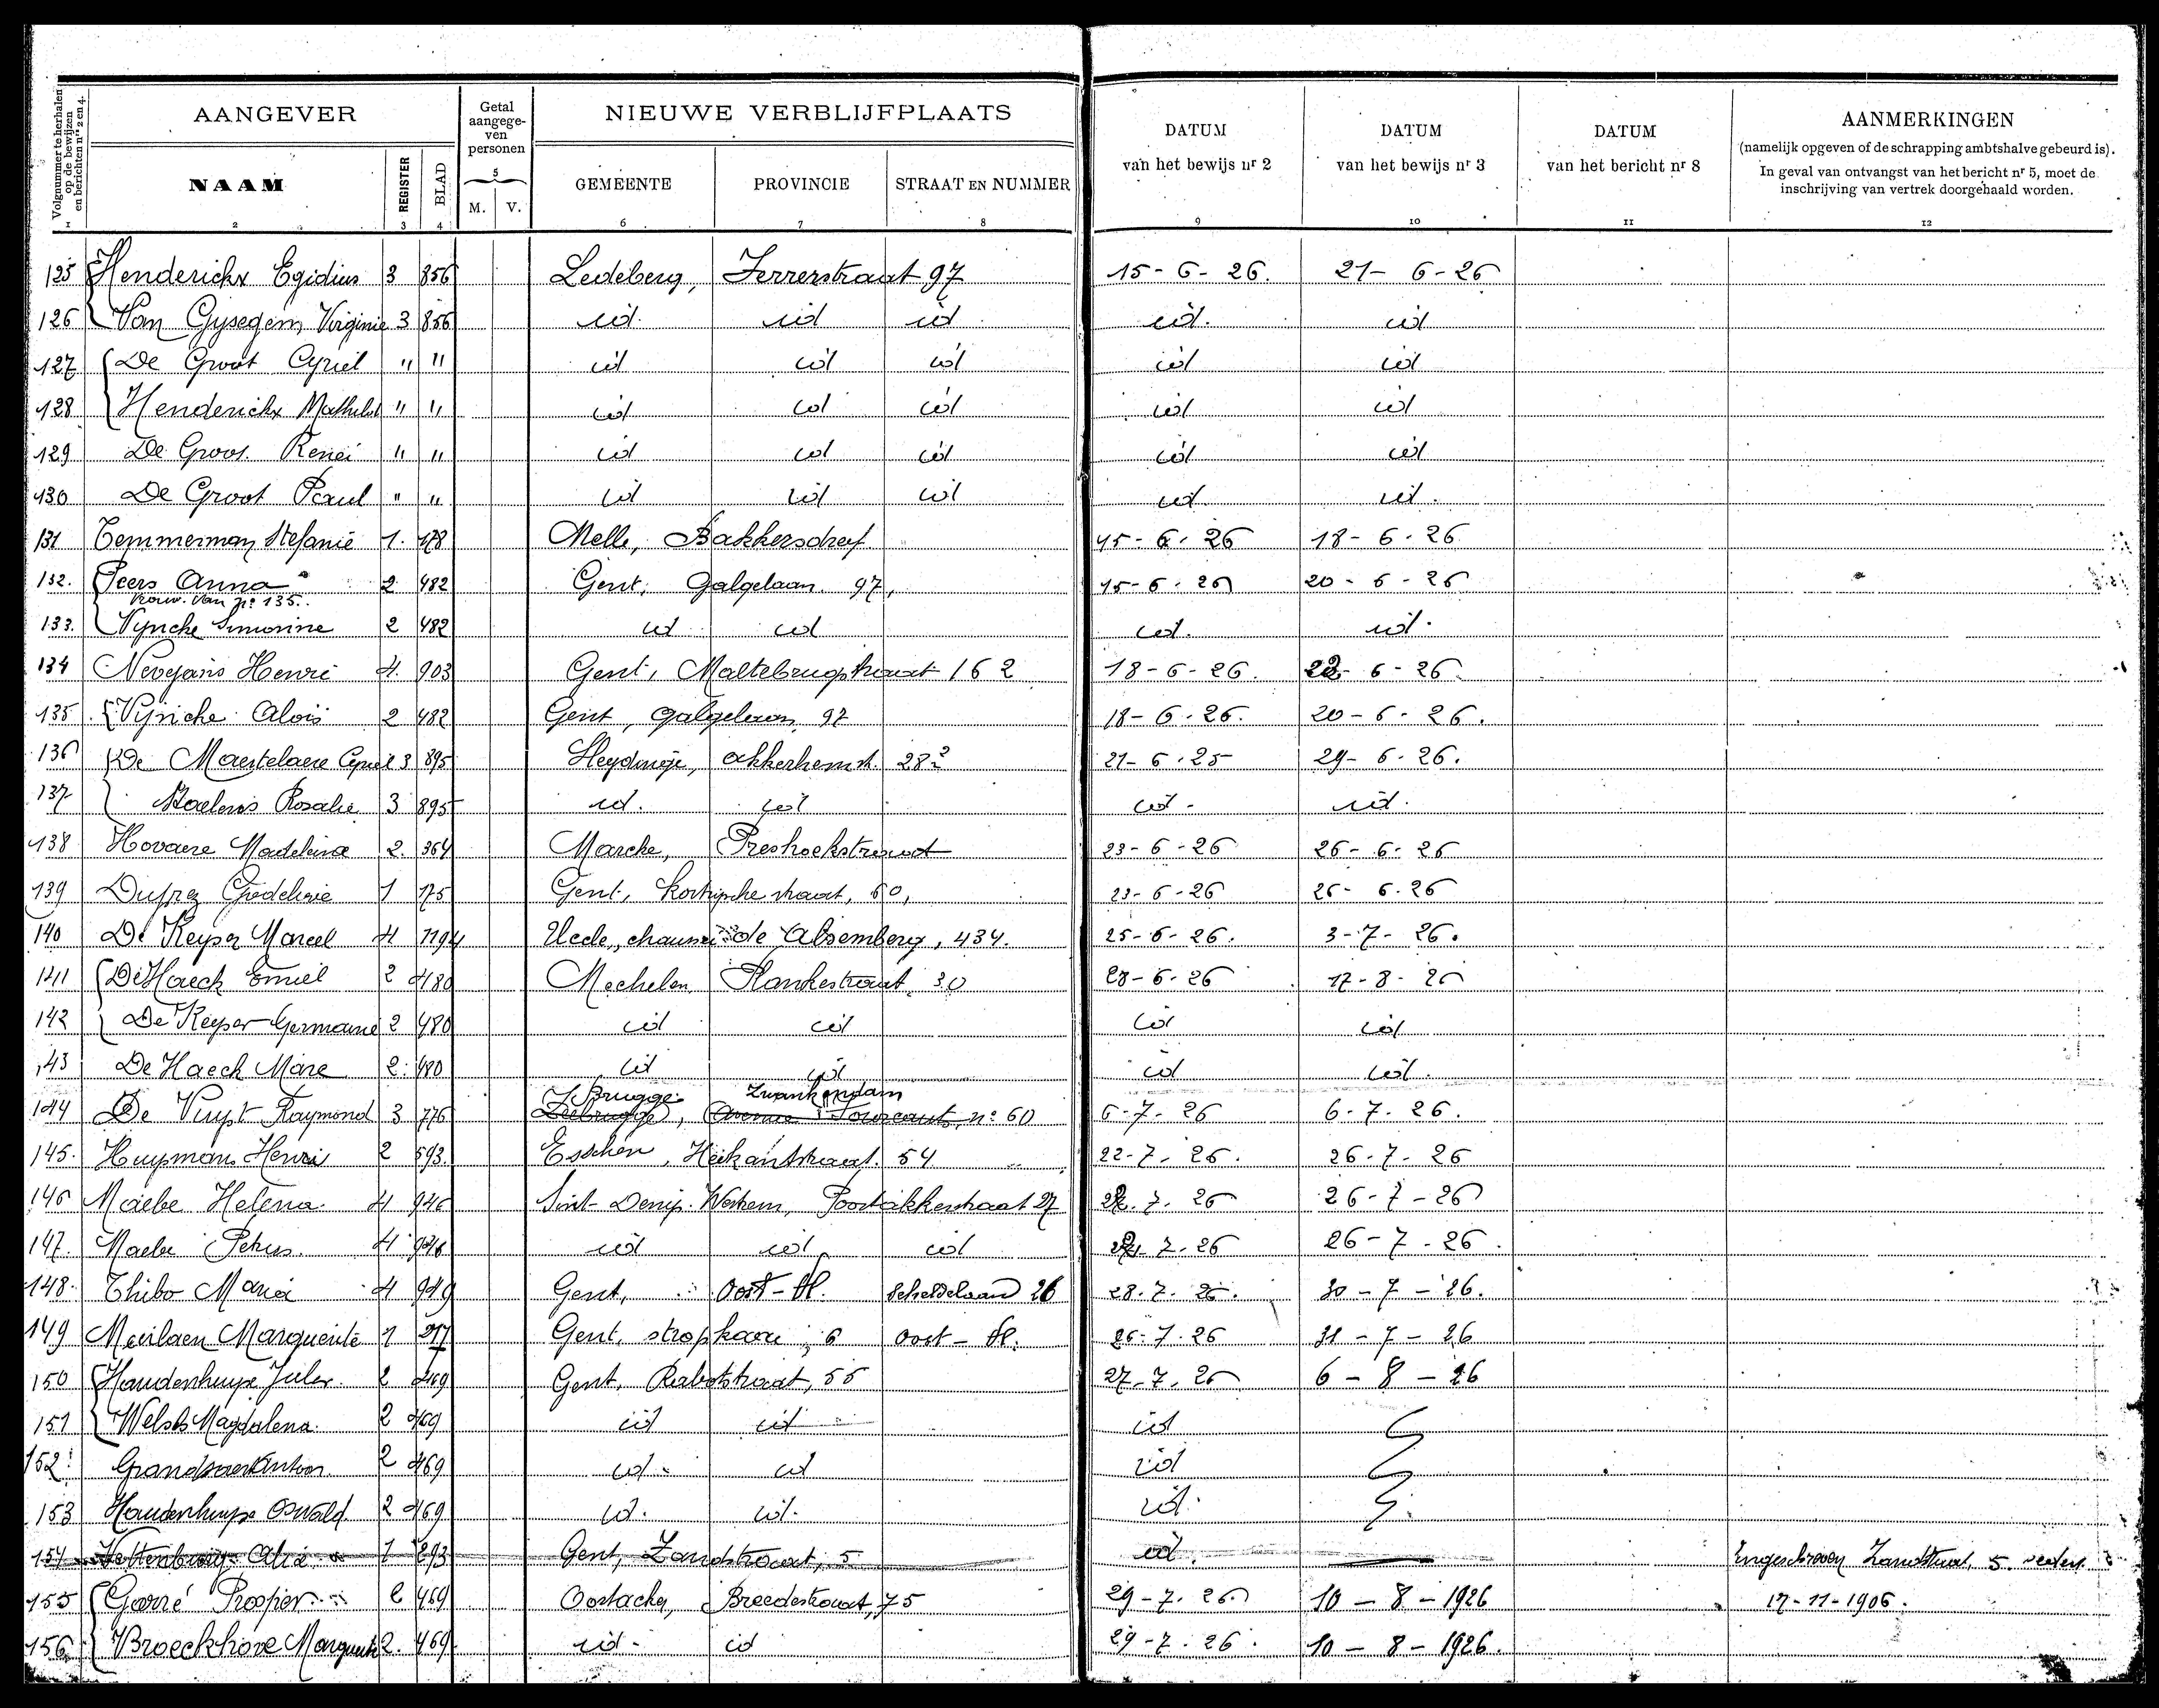 Volgnummer te herhalen op de bewijzen en berichten nrs 2 en 4.
AANGEVER
Getal aangegeven personen
NIEUWE VERBLIJFPLAATS
DATUM van het bewijs nr 2
DATUM van het bewijs nr 3
DATUM van het bericht nr 8
AANMERKINGEN
(namelijk opgeven of de schrapping ambtshalve gebeurd is).
In geval van ontvangst van het bericht nr 5, moet de
inschrijving van vertrek doorgehaald worden.
NAAM REGISTER BLAD 5 M. V. GEMEENTE PROVINCIE STRAAT EN NUMMER
1 2 3 4 6 7 8 9 10 11 12
125 Henderickx Egidius 3 856 Ledeberg, Ferrerstraat 97 15-6-26. 21-6-26
126 Van Gysegem Virginie 3 856 id. id id id. id
127 De Groot Cyriel " " id id id id id
128 Henderickx Mathild " " id id id id id
129 De Groot René " " id id id id id
130 De Groot Paul " " id id id id id.
131 Temmerman Stefanie 1. 178 Melle, Bakkersdreef. 15-6-26 18-6-26
132. Peers Anna 2 482 Gent, Galgelaan 97, 15-6-26 20-6-26
vrouw. van nº 135.
133. Vynche Simonne 2 482 id id id. id.
134 Nevejans Henri 4. 903 Gent, Maltebrugstraat 162 18-6-26. 22-6-26.
135 Vynche Aloïs 2 482 Gent, galgelaan, 97 18-6-26. 20-6-26.
136 De Maertelaere Cyriel 3 895 Sleydinge, akkerhemstr. 28² 21-6-25 29-6-26.
137 Rosalie 3 895 id. id id. id.
138 Hovaere Madeleine 2. 364 Marcke, Preshoekstraat 23-6-26 26-6-26
139 Duprez Godelieve 1 175 Gent, Kortrijksche straat, 60, 23-6-26 26-6-26
140 De Keyser Marcel 4 1194 Uccle, chaussée de Alsemberg, 434. 25-6-26. 3-7-26.
141 De Haeck Emiel 2 480 Mechelen Plankestraat, 30 28-6-26 17-8-26
142 De Keyser Germaine 2 480 id id id id
143 De Haeck Marie 2. 480 id id id id.
Brugge Zwankendam
144 De Vuyst Raymond 3 776 Zeebrugge, Avenue nº 60 6-7-26 6-7-26.
145. Huymans Henri 2 593. Esschen, Heikantstraat. 54 22-7-26. 26-7-26
146 Maebe Helena 4 946 Sint-Denijs-Westrem, Poortakkerstraat 27 22-7-26 26-7-26
147. Maebe Petrus. 4 946 id id id 22-7-26 26-7-26.
148. Thibo Maria 4 949 Gent, Oost-Vl. Scheldelaan 26 28.7.26. 30-7-26.
149 Meulaen Marguerite 1 217 Gent, stropkaai, 6 oost-Vl. 26-7-26 31-7-26
150 Haudenhuyse Jules. 2 469 Gent, Rabotstraat, 55 27-7-26 6-8-26
151 Welsch Magdalena. 2 469 id id id
152 Antoon 2 469 id. id id
153 Haudenhuyse Oswald 2 469 id. id. id.
154 Alix 1 293 Gent, Zandstraat, 5 id. Ingeschreven Zandstraat, 5. sedert
155 Garré Prosper 2 469 Oostacker, Breedestraat, 75 29-7-26 10-8-1926 17-11-1906.
156 Broeckhove Marguerite 2. 469 id. id 29-7-26. 10-8-1926.